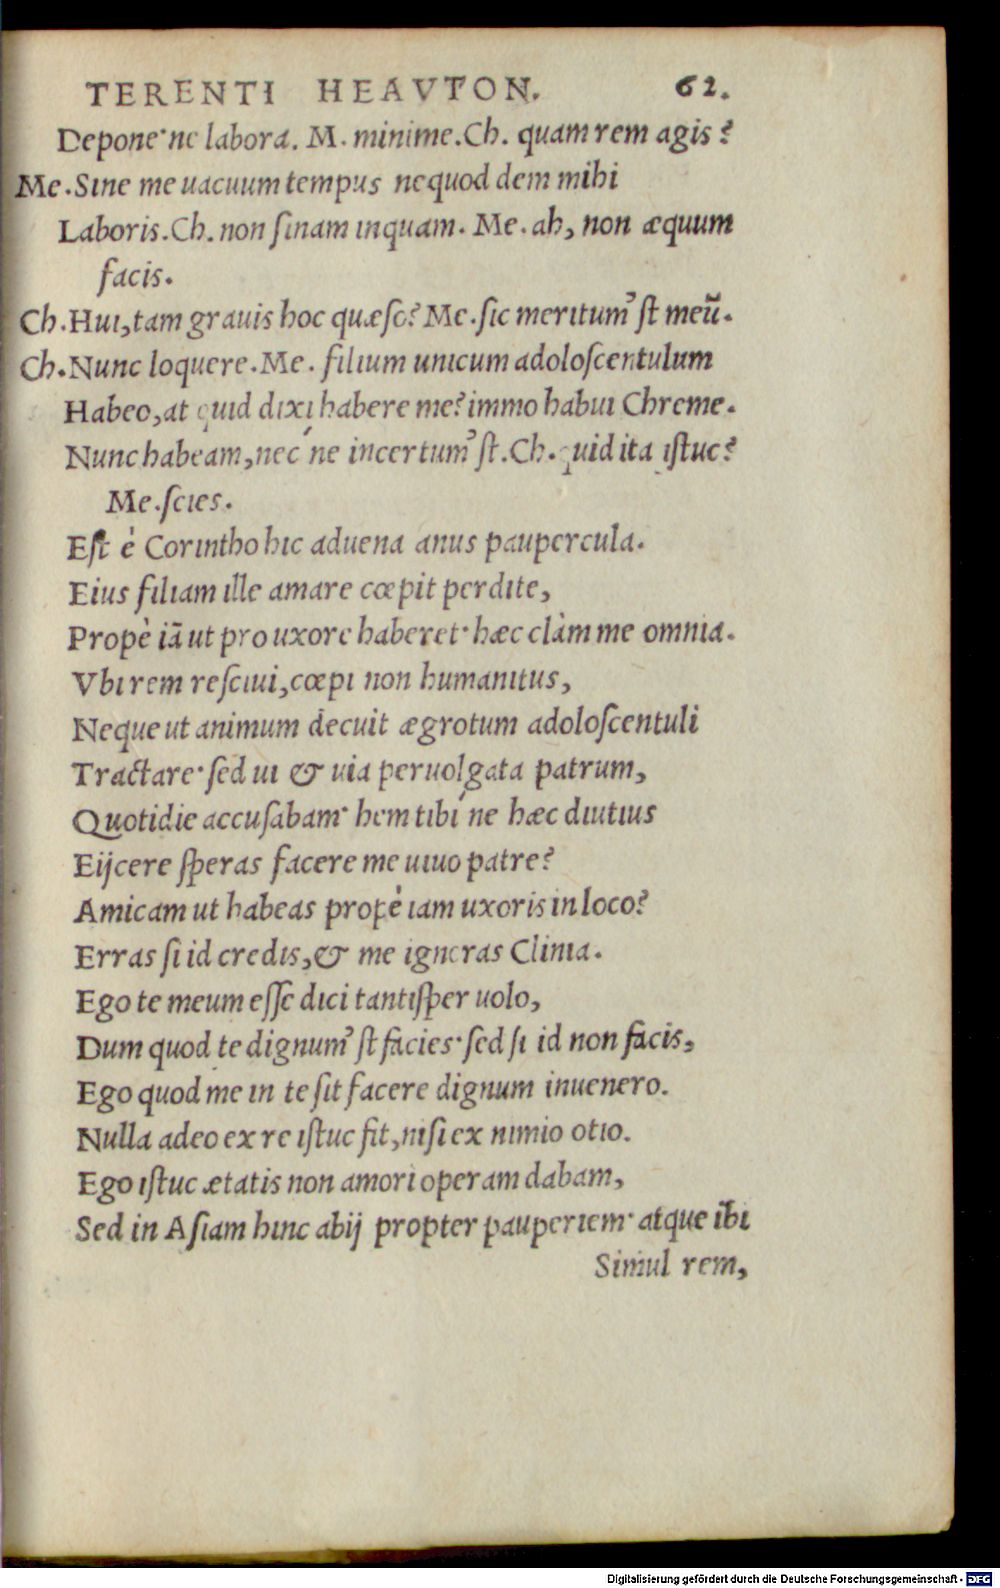 TERENTI HEAVTON. 62.
Depone· ne labora. M. minime. Ch. quam rem agis?
Me. Sine me uacuum tempus ne quod dem mihi
Laboris. Ch. non ſinam inquam. Me. ah, non æquum
facis.
Ch. Hui, tam grauis hoc quæſo? Me. ſic meritum'ſt meũ.
Ch. Nunc loquere. Me. filium unicum adoloſcentulum
Habeo, at quid dixi habere me? immo habui Chreme.
Nunc habeam, nec'ne incertum'ſt. Ch. quid ita iſtuc?
Me. ſcies.
Eſt è Corintho hic aduena anus paupercula.
Eius filiam ille amare cœpit perdite,
Propè iã ut pro uxore haberet· hæc clàm me omnia.
Vbi rem reſciui, cœpi non humanitus,
Neque ut animum decuit ægrotum adoloſcentuli
Tractare· ſed ui & uia peruolgata patrum,
Quotidie accuſabam· hem tibi'ne hæc diutius
Eijcere ſperas facere me uiuo patre?
Amicam ut habeas propè iam uxoris in loco?
Erras ſi id credis, & me ignoras Clinia.
Ego te meum eſſe dici tantiſper uolo,
Dum quod te dignum'ſt facies· ſed ſi id non facis,
Ego quod me in te ſit facere dignum inuenero.
Nulla adeo ex re iſtuc fit, niſi ex nimio otio.
Ego iſtuc ætatis non amori operam dabam,
Sed in Aſiam hinc abij propter pauperiem· atque ibi
Simul rem,
Digitalisierung gefördert durch die Deutsche Forschungsgemeinschaft - DFG